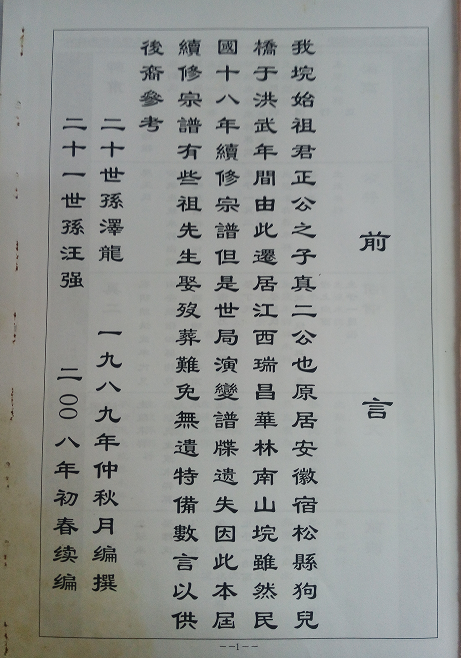 前言
我垸始祖君正公之子真二公也原居安徽宿松縣狗兒
橋于洪武年間由此遷居江西瑞昌華林南山垸雖然民
國十八年續修宗譜但是世局演變譜牒遺失因此本屆
續修宗譜有些祖先生娶歿葬難免無遺特備數言以供
後裔參考
二十世孫澤龍 一九八九年仲秋月编撰
二十一世孫汪强 二〇〇八年初春续编
--1--